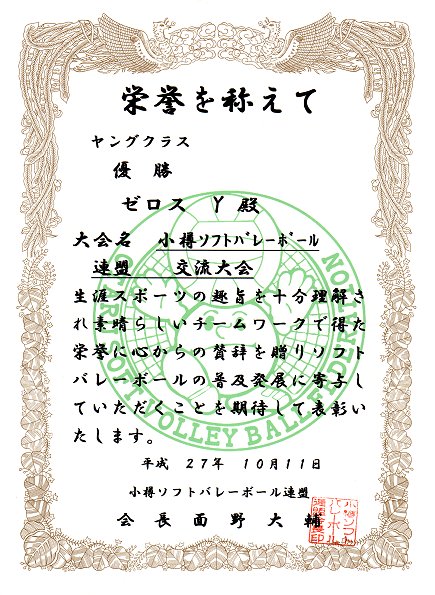 栄誉を称えて
ヤングクラス
優勝
ゼロス Y 殿
大会名 小樽ソフトバレーボール
連盟 交流大会
生涯スポーツの趣旨を十分理解さ
れ素晴らしいチームワークで得た
栄誉に心からの賛辞を贈りソフト
バレーボールの普及発展に寄与し
ていただくことを期待して表彰い
たします。
平成 27年 10月11日
小樽ソフトバレーボール連盟
会長 面野大輔
VOLLEY BALL FEDERATION